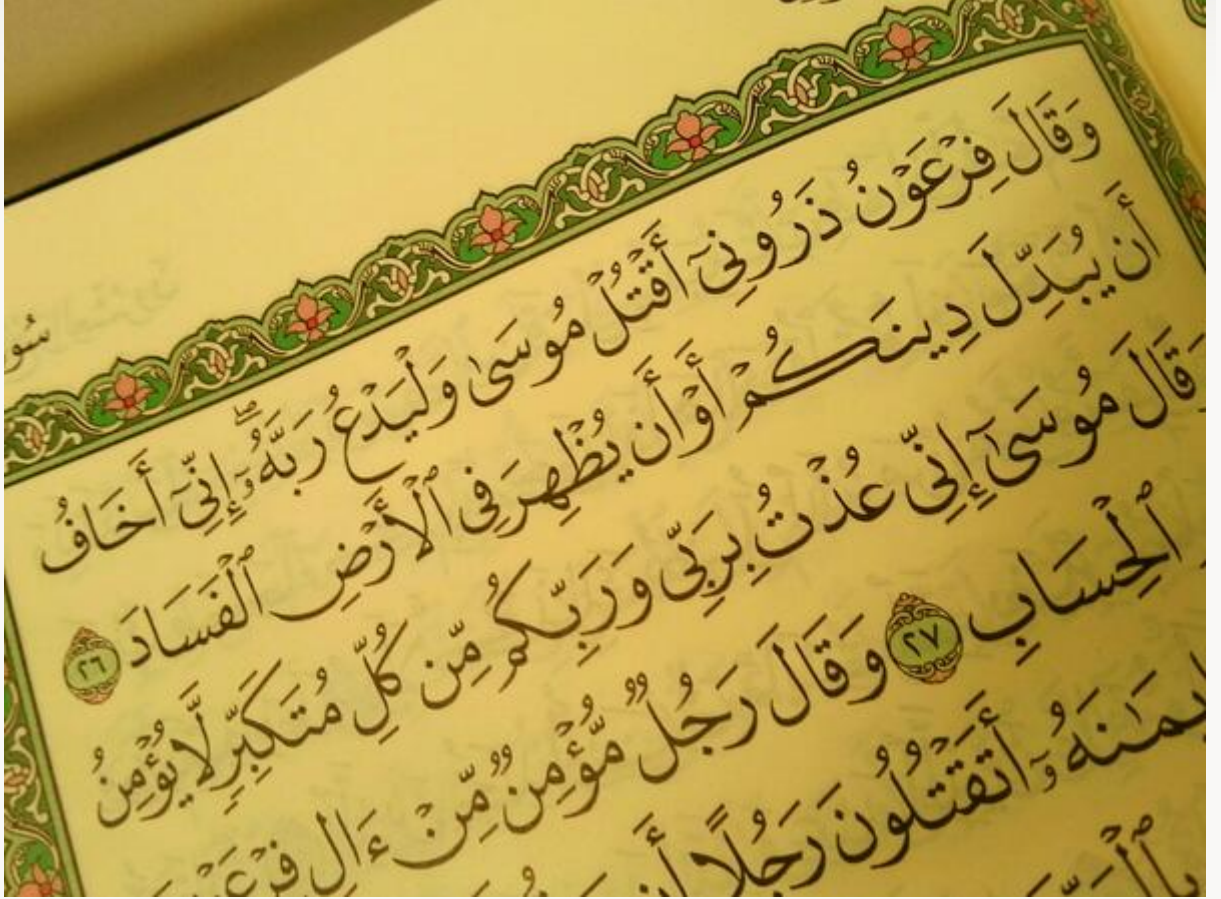 سُو
وَقَالَ فِرْعَوْنُ ذَرُونِىٓ أَقْتُلْ مُوسَىٰ وَلْيَدْعُ رَبَّهُۥٓ ۖ إِنِّىٓ أَخَافُ
أَن يُبَدِّلَ دِينَكُمْ أَوْ أَن يُظْهِرَ فِى ٱلْأَرْضِ ٱلْفَسَادَ ٢٦
وَقَالَ مُوسَىٰٓ إِنِّى عُذْتُ بِرَبِّى وَرَبِّكُم مِّن كُلِّ مُتَكَبِّرٍ لَّا يُؤْمِنُ
ٱلْحِسَابِ ٢٧ وَقَالَ رَجُلٌ مُّؤْمِنٌ مِّنْ ءَالِ فِرْعَوْ
يمَـٰنَهُۥٓ أَتَقْتُلُونَ رَجُلًا أَن